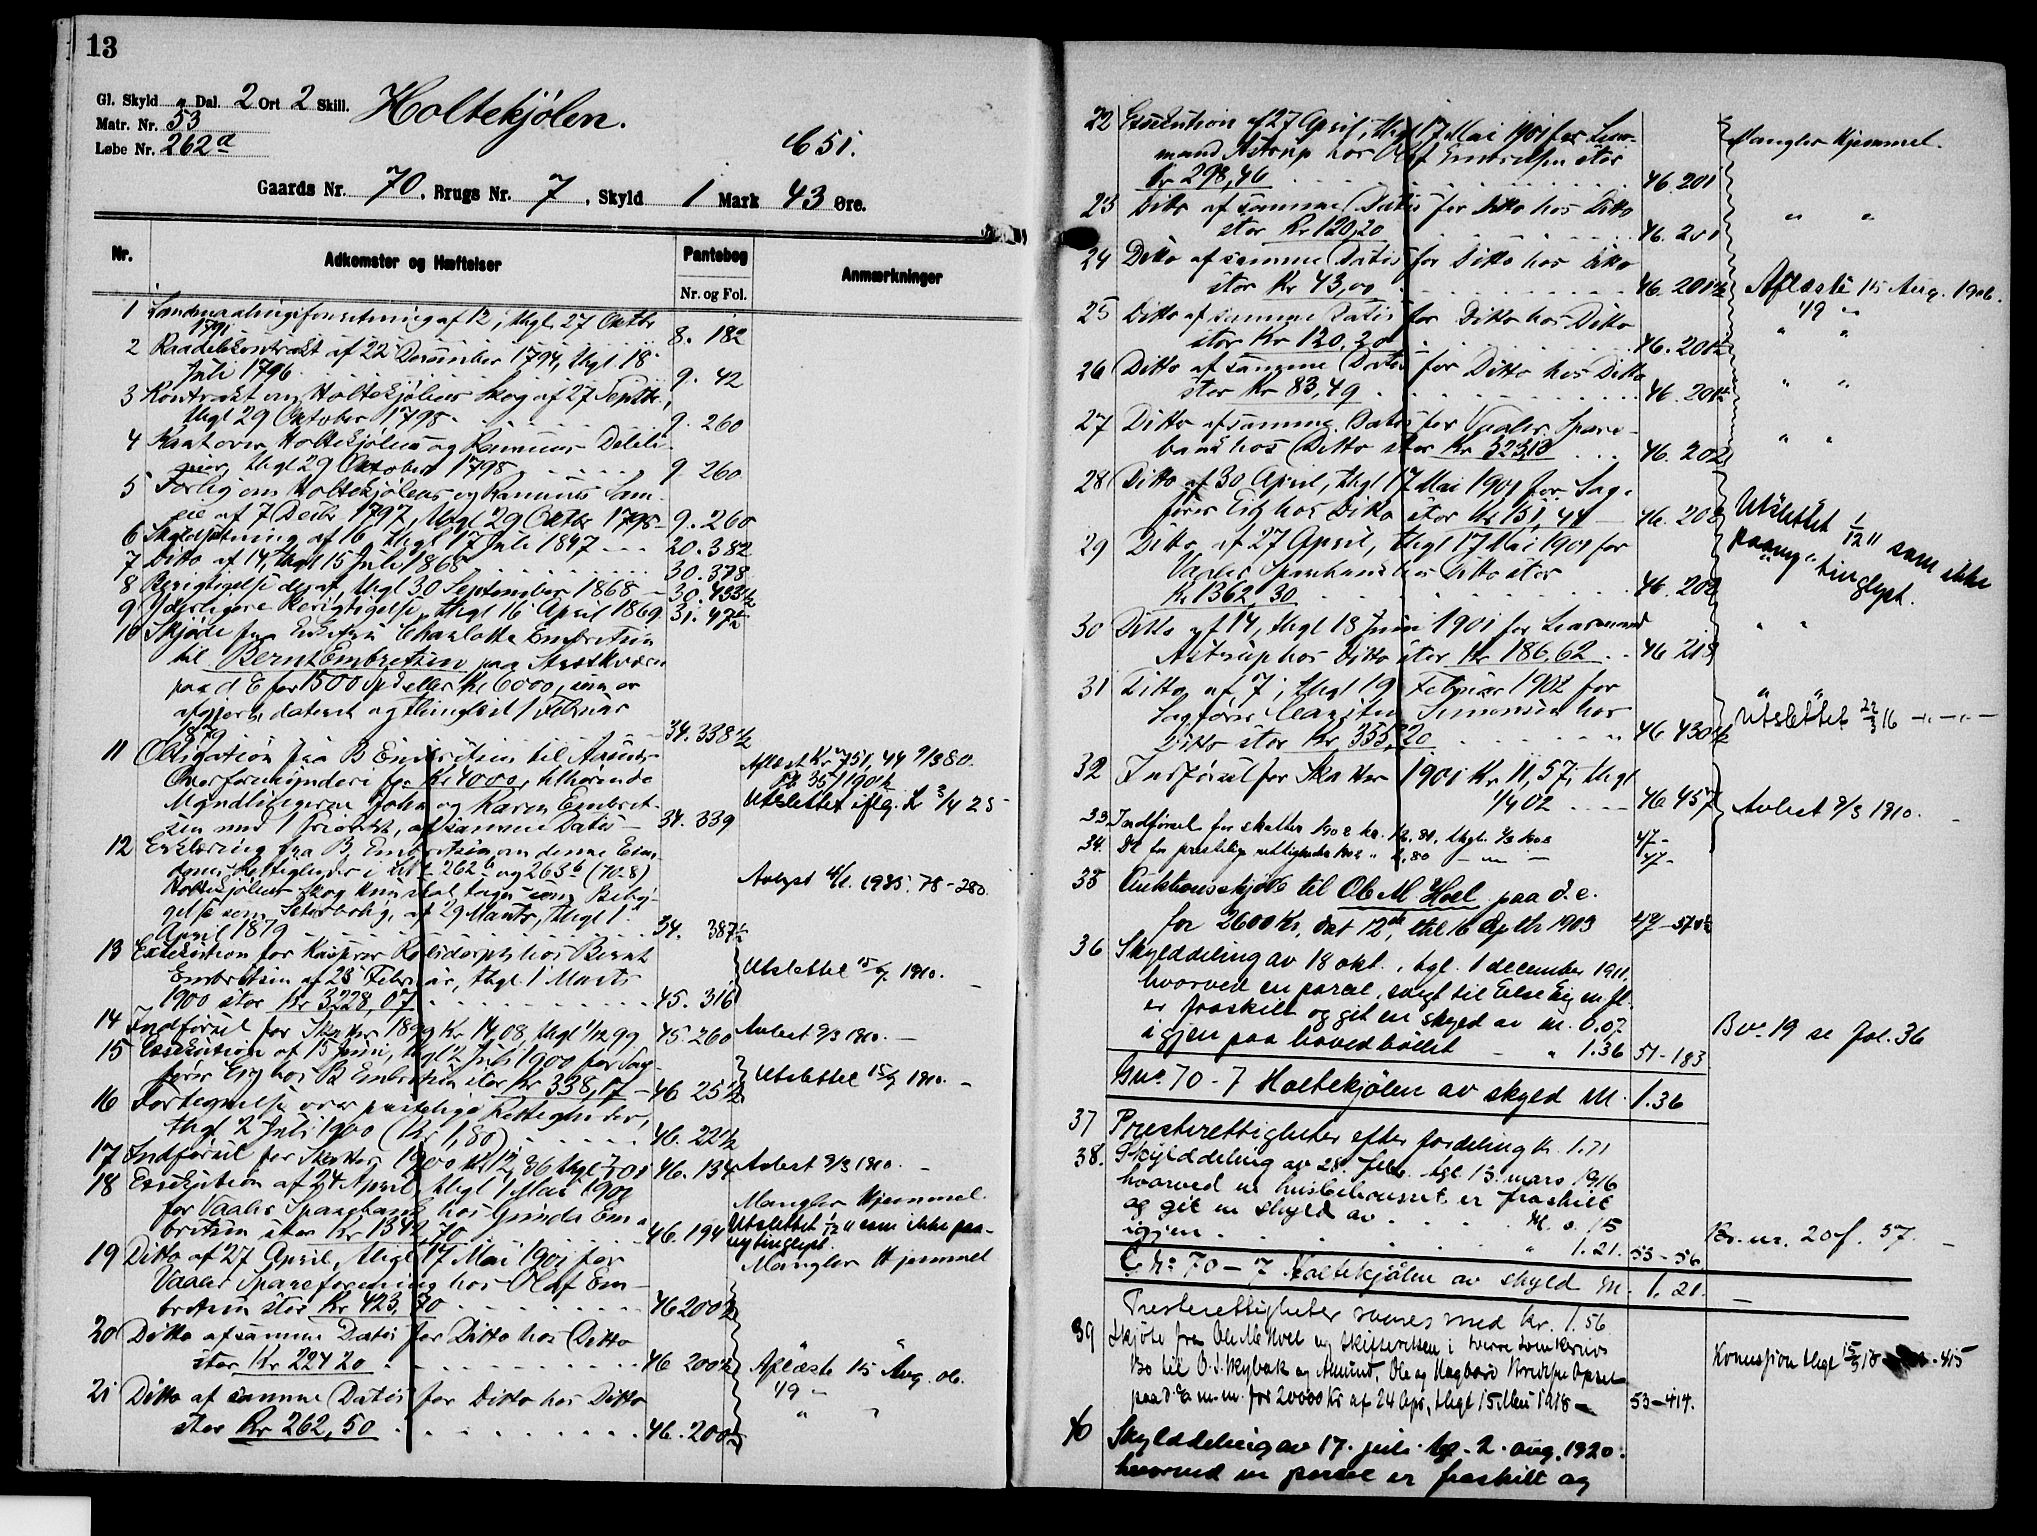 13
Gl. Skyld " Dal. 2 Ort 2 Skill. Holtekjølen.
Matr. Nr. 53
Løbe Nr. 262a
651.
Gaards Nr. 70, Brugs Nr. 7, Skyld 1 Mark 43 Øre.
Nr. Adkomster og Hæftelser Pantebog Nr. og Fol. Anmærkninger
1 af 12, thgl. 27 Oktbr
1791 8. 182
2 Raadelskontrakt af 22 December 1794, thgl 18
Juli 1796 9. 42
3 Kontrakt om Holtekjølens Skog af 27 Septbr.,
thgl 29 Oktober 1798 9. 260
4 Kart over Holtekjølens og Delelinier,
thgl 29 Oktober 1798 9 260
5 Forlig om Holtekjølens og Sameie
af 7 Decbr 1797, thgl 29 Oktbr 1798 9. 260
6 Skyldsætning af 16, thgl 17 Juli 1847 20. 382
7 Ditto af 14, thgl 15 Juli 1868 30. 378
8 Berigtigelse deraf, thgl 30 September 1868 30. 433 1/2
9 Yderligere Berigtigelse, thgl 16 April 1869 31. 47
10 Skjøde fra Enkefru Charlotte Embretsen
til Bernt Embretsen paa
paa d E for 1500 Spd eller Kr 6000, som er
afgjort, dateret og thinglyst 1 Februar
1879 34. 338 1/2
11 Obligation fra B Embretsen til Aasnes
Overformynderi for Kr 4000, tilhørende
Myndlingerne Johan og Karen Embretsen
med 1 Prioritet, af samme Datis 34. 339
Aflæst Kr 751,44 9/3 80.
Utslettet iflg. L 3/4 25
12 Erklæring fra B Embretsen om denne Eiendoms
Rettigheder i 262b og 263b (70-8)
Holtekjølens skog kun skal tages som Beboelse
som Sæterbolig, af 29 Marts, thgl 1
April 1879 34. 387 1/2
Avlyst 4/1. 1935. 78-280.
13 Exekution for Kasper hos Bernt
Embretsen af 28 Februar, thgl 1 Marts
1900 stor Kr 3228,07 45. 316
Utslettet 15/9 1910.
14 Indførsel for Skatter 1899 Kr 14,08, thgl 1/12 99 45. 260 Avlest 9/3 1910.
15 Exekution af 15 Juni, thgl 2 Juli 1900 for Sagfører
Eig hos B Embretsen stor Kr 338,17 46 25 1/2
Utslettet 15/9 1910.
16 Fortegnelse over prestelige Rettigheder,
thgl 2 Juli 1900 (Kr 1,80) 46. 22 1/2
17 Indførsel for Skatter 1900 Kr 12,36 thgl 46. 134 Avlest 9/3 1910.
18 Exekution af 24 April, thgl 1 Mai 1901
for Vaaler Sparebank hos Gunda Embretsen
stor Kr 1342,70 46. 194
Mangler Hjemmel.
Utslettet 1/12 11 som ikke paanytinglyst
19 Ditto af 27 April, thgl 17 Mai 1901 for
Vaaler Spareforening hos Olaf Embretsen
stor Kr 423,70 46 200 1/2
Mangler Hjemmel
20 Ditto af samme Datis for Ditto hos Ditto
stor Kr 224 20 46 200 1/2
Aflæste 15 Aug. 06.
21 Ditto af samme Datis for Ditto hos Ditto
stor Kr 262,50 46. 200 1/2
22 Exekution af 27 April, thgl 17 Mai 1901 for Lensmand
Astrup hos Olaf Embretsen stor
Kr 298,46 46. 201
Mangler Hjemmel.
23 Ditto af samme Datis for Ditto hos Ditto
stor Kr 120,20 46. 201
24 Ditto af samme Datis for Ditto hos Ditto
stor Kr 43,00 46. 201 1/2
Aflæste 15 Aug. 1906.
25 Ditto af samme Datis for Ditto hos Ditto
stor Kr 120,20 46. 201 1/2
26 Ditto af samme Datis for Ditto hos Ditto
stor Kr 83,49 46. 201 1/2
27 Ditto af samme Datis for Vaaler Sparebank
hos Ditto stor Kr 323,13 46. 202
28 Ditto af 30 April, thgl 17 Mai 1901 for Sagfører
Eig hos Ditto stor Kr 151,44 46. 202
Utslettet 1/12 11 som ikke
paany tinglyst.
29 Ditto af 27 April, thgl 17 Mai 1901 for
Vaaler Sparebank hos Ditto stor
Kr 1362,30 46. 202
30 Ditto af 14, thgl 18 Juni 1901 for Lensmand
Astrup hos Ditto stor Kr 186,62 46 218
31 Ditto af 7, thgl 19 Februar 1902 for
Sagfører Simonsen hos
Ditto stor Kr 355,20 46 430 1/2
Utslettet 22/3 16
32 Indførsel for Skatter 1901 Kr 11,57, thgl
1/4 02 46 457 Avlest 9/3 1910.
33 Indførsel for skatter 47-
34. 47-
35 Auktionsskjøde til Ole M. Hoel paa d. e.
for 2600 Kr, dat 12te, thl 16 1903 47-570
36 Skylddeling av 18 okt., tgl. 1 december 1911,
hvorved en parcel, solgt til Else Eig m fl.
er fraskilt og git en skyld av m. 0.07
igjen paa hovedbøllet " 1.36 51-183
Bno 19 se fol. 36
Gno 70-7 Holtekjølen av skyld M. 1.36
37 Presterettigheter efter fordeling kr. 1.71
38. Skylddeling av 28. febr. tgl. 13. mars 1916
hvorved er fraskilt
og git en skyld av M. 0. 15
igjen " 1.21. 53-56
Br. nr. 20 f. 57.
G. No 70-7 Holtekjølen av skyld M. 1. 21.
Presterettigheter med kr. 1.56
39 Skjøte fra Ole M. Hoel og skifteretten i
Bo til O. J. Skybak og Amund, Ole og Hagbard
paa d e m. m. for 20000 Kr af 24 Apr, thgl 15 Mai 1918 53-414.
Konsesjon thgl 15/5 18 415
40 Skylddeling av 17. juli tgl. 2. aug. 1920.
hvorved en parcel er fraskilt og